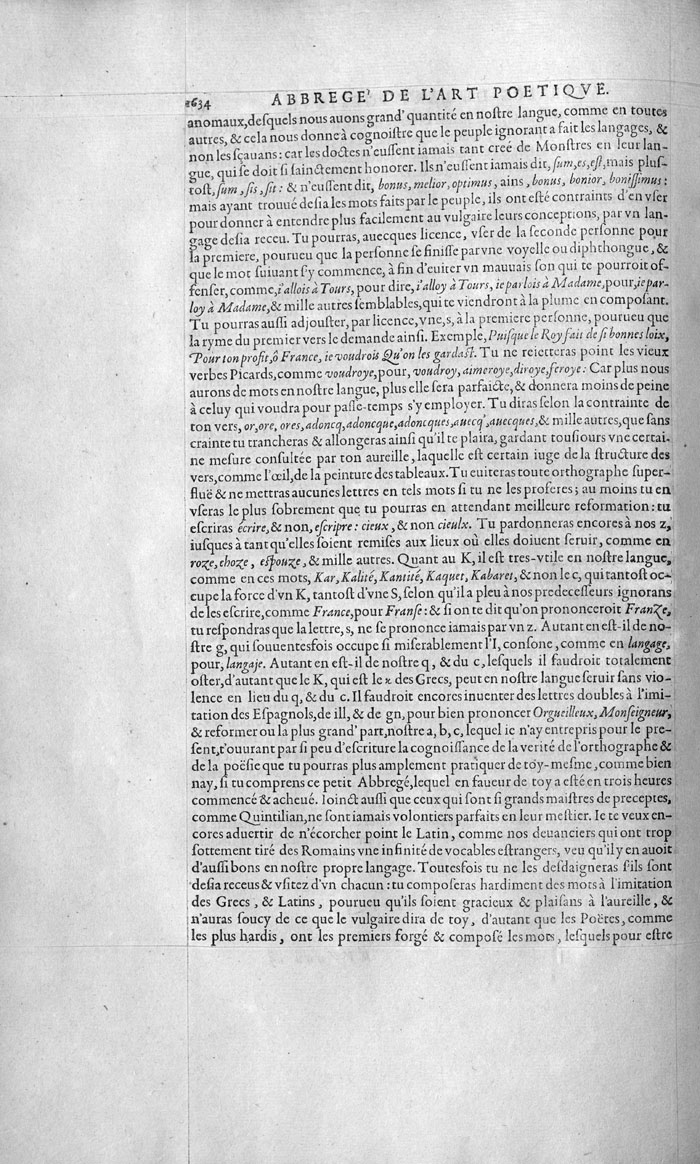 1634 ABBREGE' DE L'ART POETIQVE.
anomaux,desquels nous auons grand' quantité en nostre langue, comme en toutes
autres, & cela nous donne à cognoistre que le peuple ignorant a fait les langages, &
non les sçauans: car les doctes n'eussent iamais tant creé de Monstres en leur lan-
gue, qui se doit si sainctement honorer. Ils n'eussent iamais dit, sum, es, est, mais plus-
tost, sum, sis, sit: & n'eussent dit, bonus, melior, optimus, ains, bonus, bonior, bonissimus:
mais ayant trouué desia les mots faits par le peuple, ils ont esté contraints d'en vser
pour donner à entendre plus facilement au vulgaire leurs conceptions, par vn lan-
gage desia receu. Tu pourras, auecques licence, vser de la seconde personne pour
la premiere, pourueu que la personne se finisse par vne voyelle ou diphthongue, &
que le mot suiuant s'y commence, à fin d'euiter vn mauuais son qui te pourroit of-
fenser, comme, i'allois à Tours, pour dire, i'alloy à Tours, ie parlois à Madame, pour, ie par-
loy à Madame, & mille autres semblables, qui te viendront à la plume en composant.
Tu pourras aussi adjouster, par licence, vne, s, à la premiere personne, pourueu que
la ryme du premier vers le demande ainsi. Exemple, Puisque le Roy fait de si bonnes loix,
Pour ton profit, ô France, ie voudrois Qu'on les gardast. Tu ne reietteras point les vieux
verbes Picards, comme voudroye, pour, voudroy, aimeroye, diroye, feroye: Car plus nous
aurons de mots en nostre langue, plus elle sera parfaicte, & donnera moins de peine
à celuy qui voudra pour passe-temps s'y employer. Tu diras selon la contrainte de
ton vers, or, ore, ores, adoncq, adoncque, adoncques, auecq', auecques, & mille autres, que sans
crainte tu trancheras & allongeras ainsi qu'il te plaira, gardant tousiours vne certai-
ne mesure consultée par ton aureille, laquelle est certain iuge de la structure des
vers, comme l'œil, de la peinture des tableaux. Tu euiteras toute orthographe super-
fluë & ne mettras aucunes lettres en tels mots si tu ne les proferes; au moins tu en
vseras le plus sobrement que tu pourras en attendant meilleure reformation: tu
escriras écrire, & non, escripre: cieux, & non cieulx. Tu pardonneras encores à nos z,
iusques à tant qu'elles soient remises aux lieux où elles doiuent seruir, comme en
roze, choze, espouze, & mille autres. Quant au K, il est tres-vtile en nostre langue,
comme en ces mots, Kar, Kalité, Kantité, Kaquet, Kabaret, & non le c, qui tantost oc-
cupe la force d'vn K, tantost d'vne S, selon qu'il a pleu à nos predecesseurs ignorans
de les escrire, comme France, pour Franse: & si on te dit qu'on prononceroit Franze,
tu respondras que la lettre, s, ne se prononce iamais par vn z. Autant en est-il de no-
stre g, qui souuentesfois occupe si miserablement l'I, consone, comme en langage,
pour, langaje. Autant en est-il de nostre q, & du c, lesquels il faudroit totalement
oster, d'autant que le K, qui est le ϰ des Grecs, peut en nostre langue seruir sans vio-
lence en lieu du q, & du c. Il faudroit encores inuenter des lettres doubles à l'imi-
tation des Espagnols, de ill, & de gn, pour bien prononcer Orgueilleux, Monseigneur,
& reformer ou la plus grand' part, nostre a, b, c, lequel ie n'ay entrepris pour le pre-
sent, t'ouurant par si peu d'escriture la cognoissance de la verité de l'orthographe &
de la poësie que tu pourras plus amplement pratiquer de toy-mesme, comme bien
nay, si tu comprens ce petit Abbregé, lequel en faueur de toy a esté en trois heures
commencé & acheué. Ioinct aussi que ceux qui sont si grands maistres de preceptes,
comme Quintilian, ne sont iamais volontiers parfaits en leur mestier. Ie te veux en-
cores aduertir de n'écorcher point le Latin, comme nos deuanciers qui ont trop
sottement tiré des Romains vne infinité de vocables estrangers, veu qu'il y en auoit
d'aussi bons en nostre propre langage. Toutesfois tu ne les desdaigneras s'ils sont
desia receus & vsitez d'vn chacun: tu composeras hardiment des mots à l'imitation
des Grecs, & Latins, pourueu qu'ils soient gracieux & plaisans à l'aureille, &
n'auras soucy de ce que le vulgaire dira de toy, d'autant que les Poëtes, comme
les plus hardis, ont les premiers forgé & composé les mots, lesquels pour estre